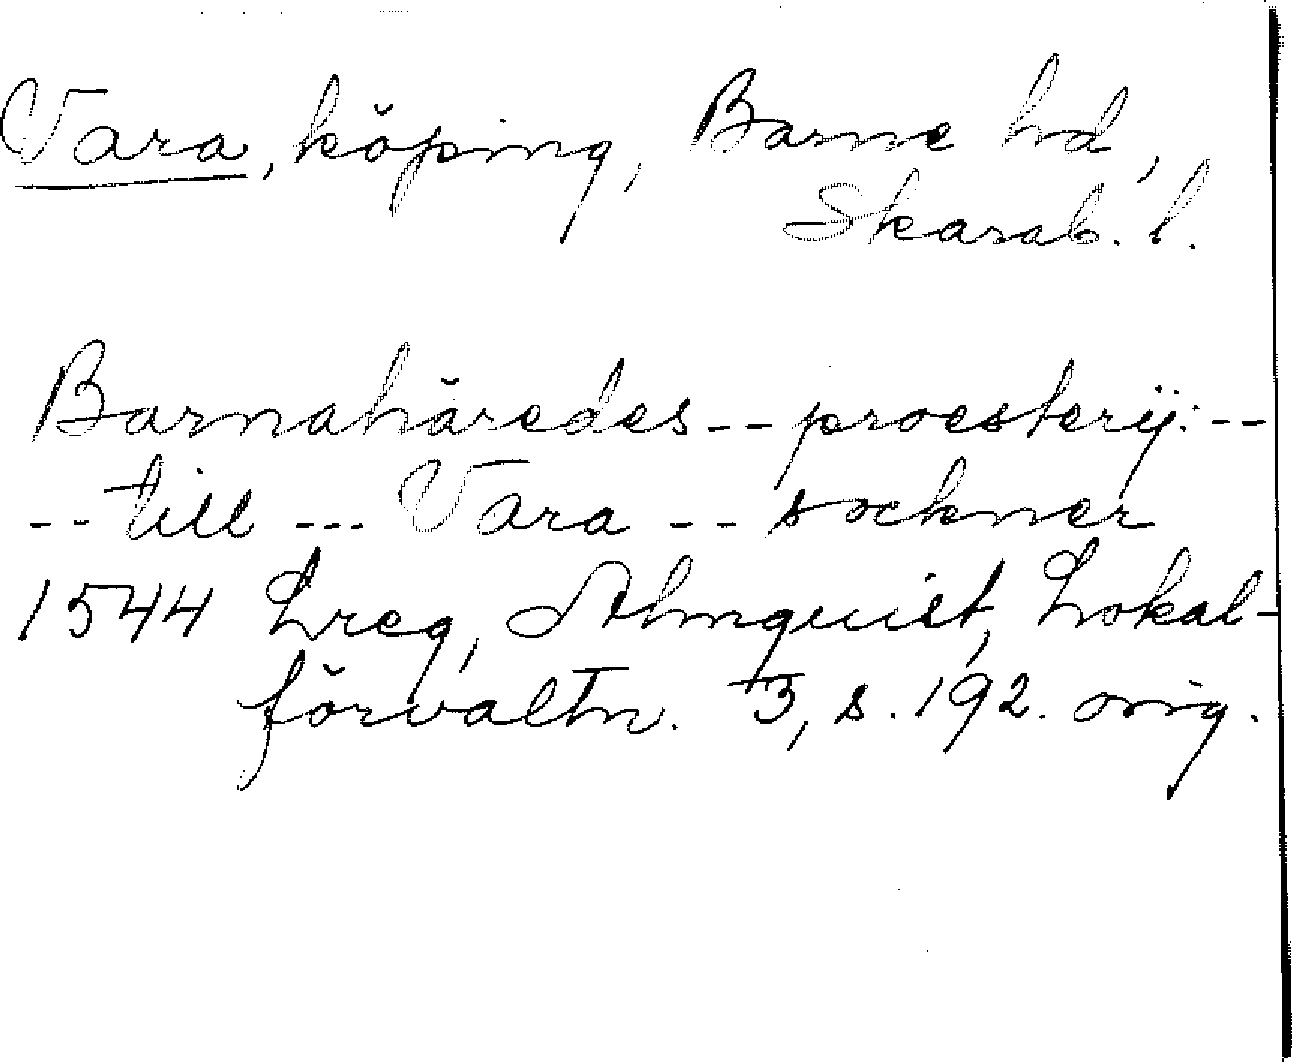 Vara, köping, Barne hd,
Skarab. l.
Barnahäredes -- proesterij: --
-- till --- Vara -- sockner
1544 Lreg, Almquist, Lokal-
förvaltn. 3, s. 192. orig.